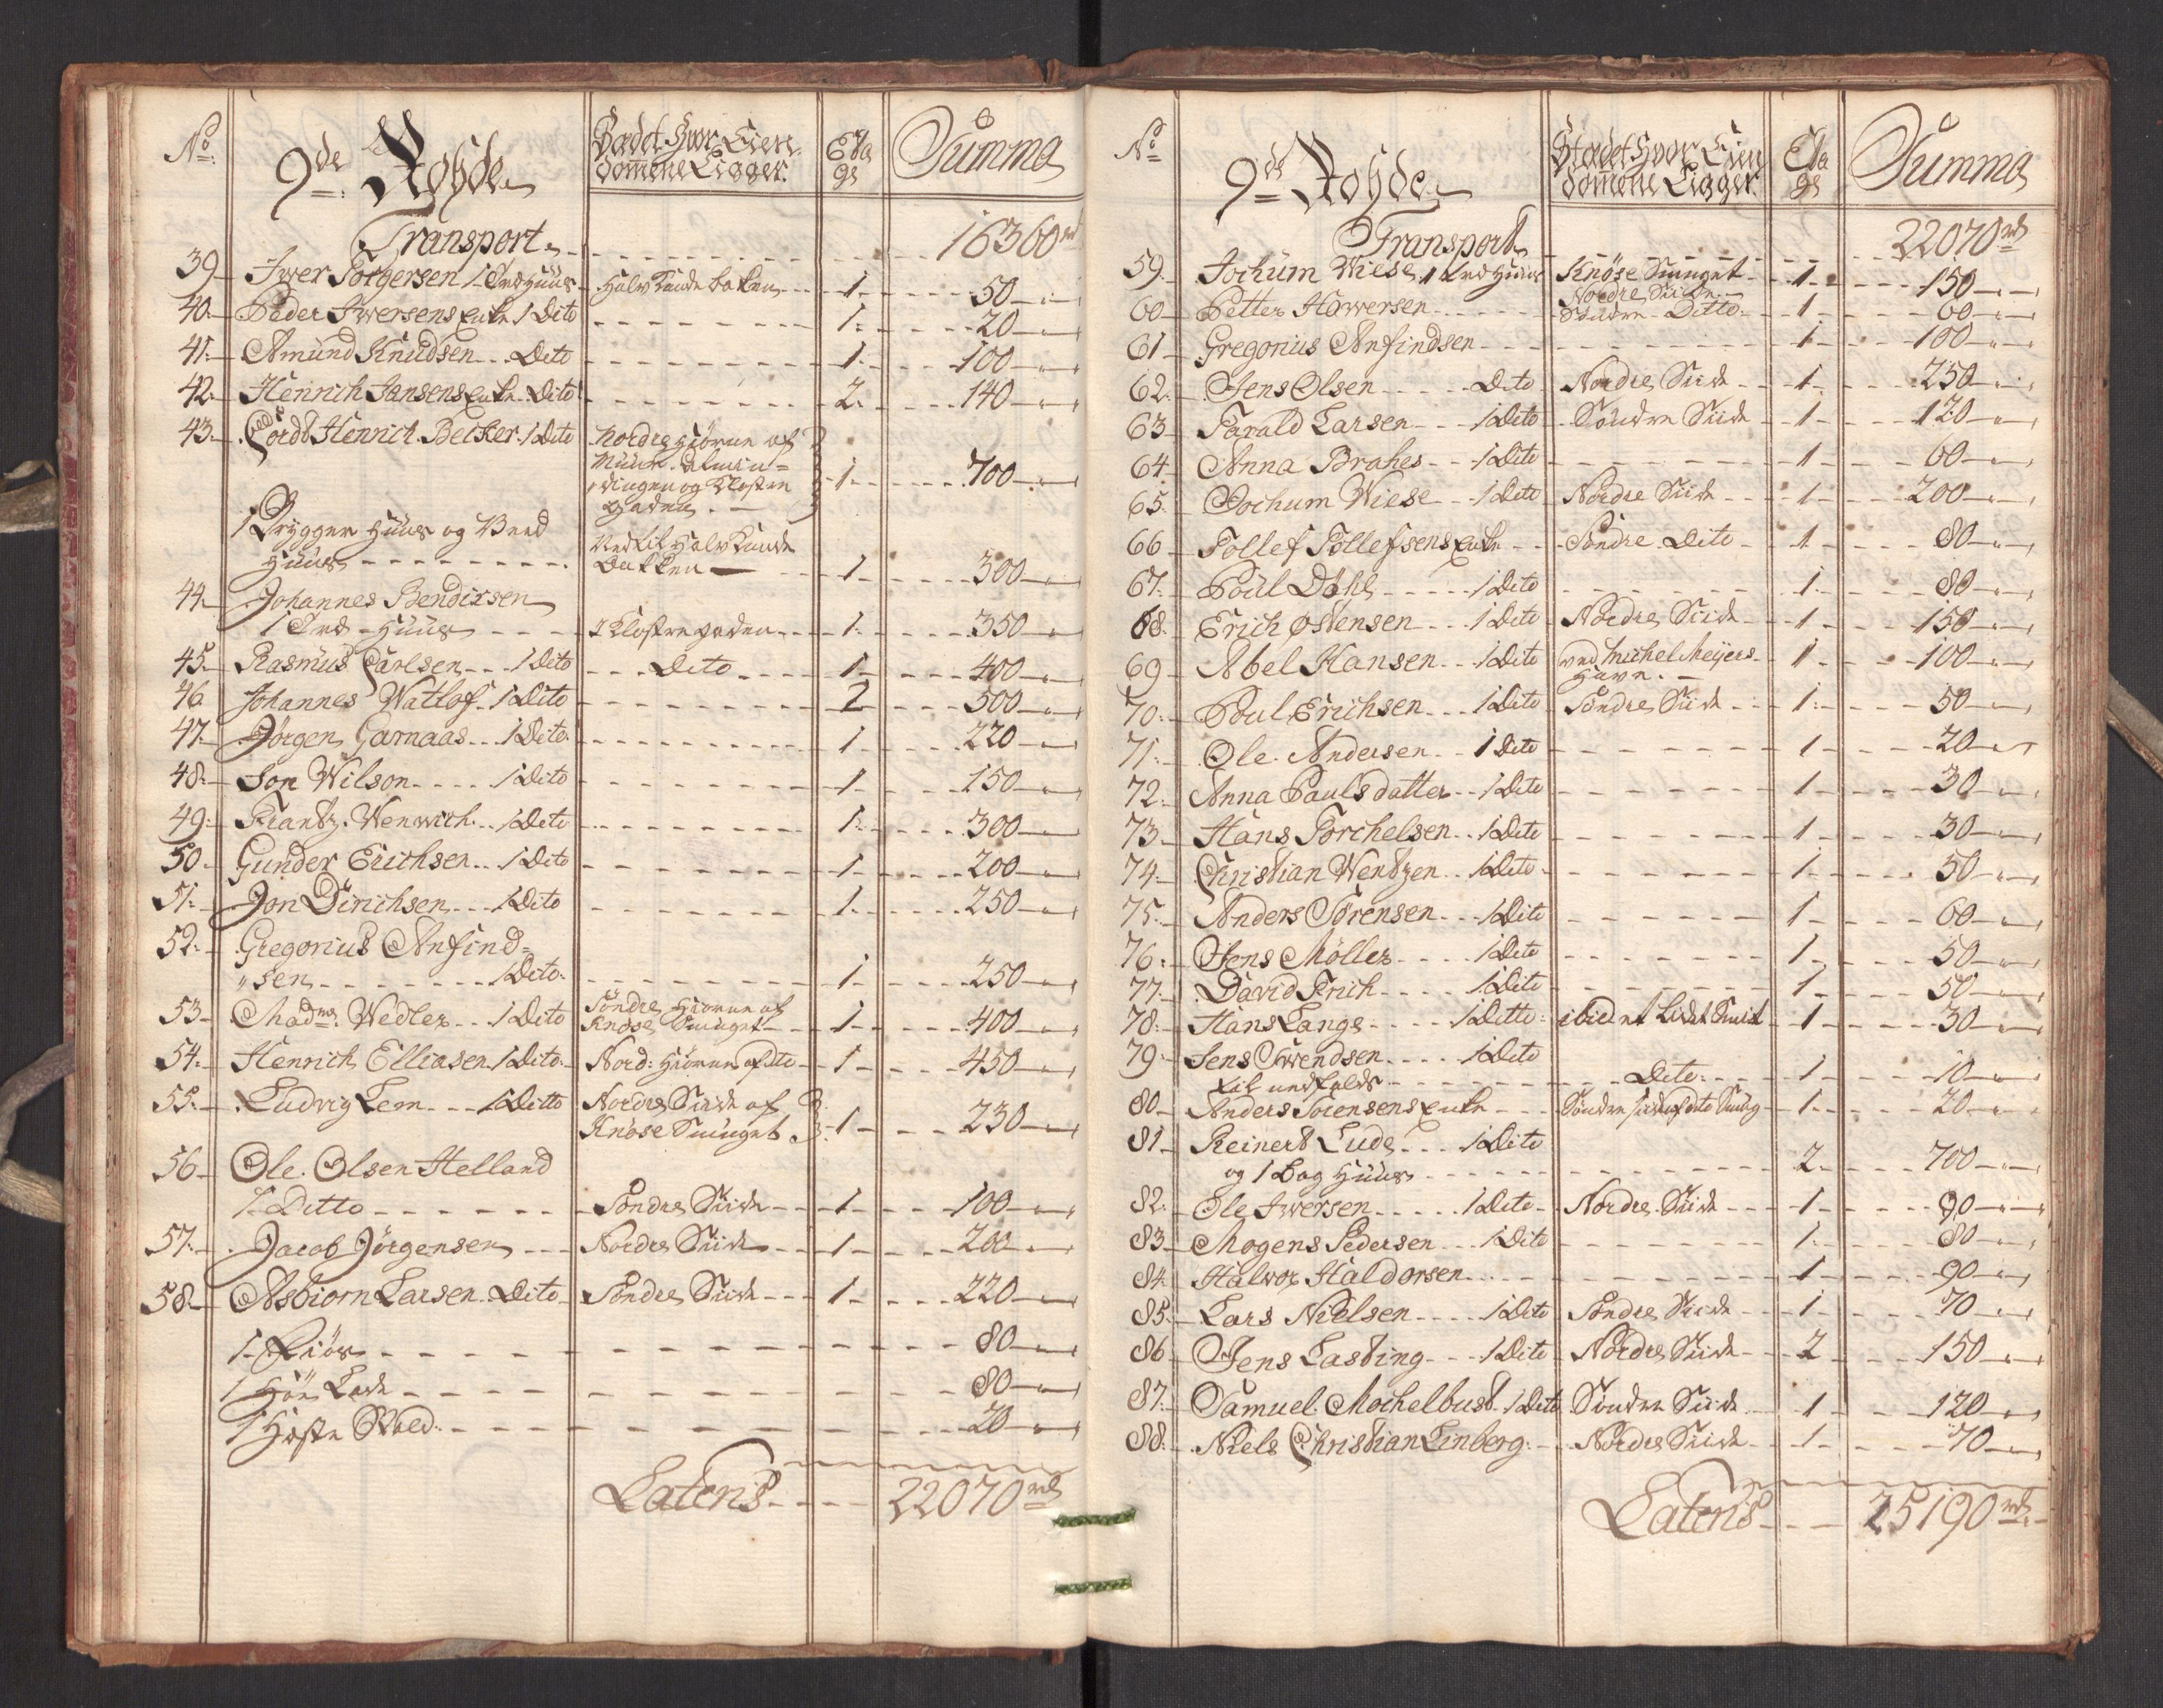 No 9de Rohde Stædet Hvor Eien= Eta Summa
dommene Ligger: ge
Transport 16360 rd
39 Iwer Torgersen 1 Træ Huus Halv Kande bakken 1 50
40 Peder Iwersens Enke 1 Dito 1 20
41 Amund Knudsen Dito 1 100
42 Henrich Jansens Enke Dito 2 140
43 Cordt Henrich Becker 1 Dito Nordre Hiørne af
Muur Almin=
dingen og Kloster 1 700
gaden
1 Brygger Huus og Brend Ved Lit Halv Kande
Huus Bakken 1 300
44 Johannes Bendixsen
1 Træ Huus I Kloster gaden 1 350
45 Rasmus Carlsen 1 Dito Dito 1 400
46 Johannes Watlof 1 Dito 2 500
47 Jørgen Garnaas 1 Dito 1 220
48 Jon Wilson 1 Dito 1 150
49 Frantz Wenwich 1 Dito 1 300
50 Gunder Erichsen 1 Dito 1 200
51 Jon Dirichsen 1 Dito 1 250
52 Gregorius Anfind=
sen 1 Dito 1 250
53 Madme Wedler 1 Dito Søndre Hiørne af
Knøse Smuget 1 400
54 Henrich Elliasen 1 Dito Nord: Hiørne af dto 1 450
55 Ludvig Lem 1 Ditto Nordre Siide af
Knøse Smuget 1 230
56 Ole Olsen Helland
1 Ditto Søndre Siide 1 100
57 Jacob Jørgensen Nordre Siide 1 200
58 Asbiorn Larsen Dito Søndre Siide 1 220
1 Fiös 80
1 Höe Lade 80
1 Heste Stald 20
Lateris 22070 rd
No 9de Rohde Stædet Hvor Eien Eta Summa
dommene Ligger: ge
Transport 22070 rd
59 Jochum Wiese 1 Træ Huus Knøse Smuget 1 150
Nordre Siide
60 Petter Hawersen Søndre Ditto 1 60
61 Gregorius Anfindsen 1 100
62 Jens Olsen Dito Nordre Siide 1 250
63 Tarald Larsen 1 Dito Søndre Siide 1 120
64 Anna Brahes 1 Dito 1 60
65 Jochum Wiese 1 Dito Nordre Siide 1 200
66 Tollef Tollefsens Enke Søndre Dito 1 80
67 Poul Dahl 1 Dito 1 80
68 Erich Østensen 1 Dito Nordre Siide 1 150
69 Abel Hansen 1 Dito ved Michel Meijers 1 100
Have
70 Poul Erichsen 1 Dito Søndre Siide 1 50
71 Ole Andersen 1 Dito 1 20
72 Anna Pauls datter 1 Dito 1 30
73 Hans Torchelsen 1 Dito 1 30
74 Christian Wentzen 1 Dito 1 50
75 Anders Sørensen 1 Dito 1 60
76 Jens Møller 1 Dito 1 50
77 David Frich 1 Dito 1 50
78 Hans Lange 1 Ditto ibid et Lidet Smit 1 30
79 Jens Swendsen 1 Dito
til nedfalds Dito 1 10
80 Anders Sørensens Enke Søndre side af dito Smug 1 20
81 Reinert Lude 1 Dito
og 1 Bag Huus 2 700
82 Ole Iwersen 1 Dito Nordre Siide 1 90
83 Mogens Pedersen 1 Dito 1 80
84 Halwor Haldorsen 1 90
85 Lars Nielsen 1 Dito Søndre Siide 1 70
86 Jens Lasting 1 Dito Nordre Siide 2 150
87 Samuel Mochelbust 1 Dito Søndre Siide 1 120
88 Niels Christian Linberg Nordre Siide 1 70
Lateris 25190 rd